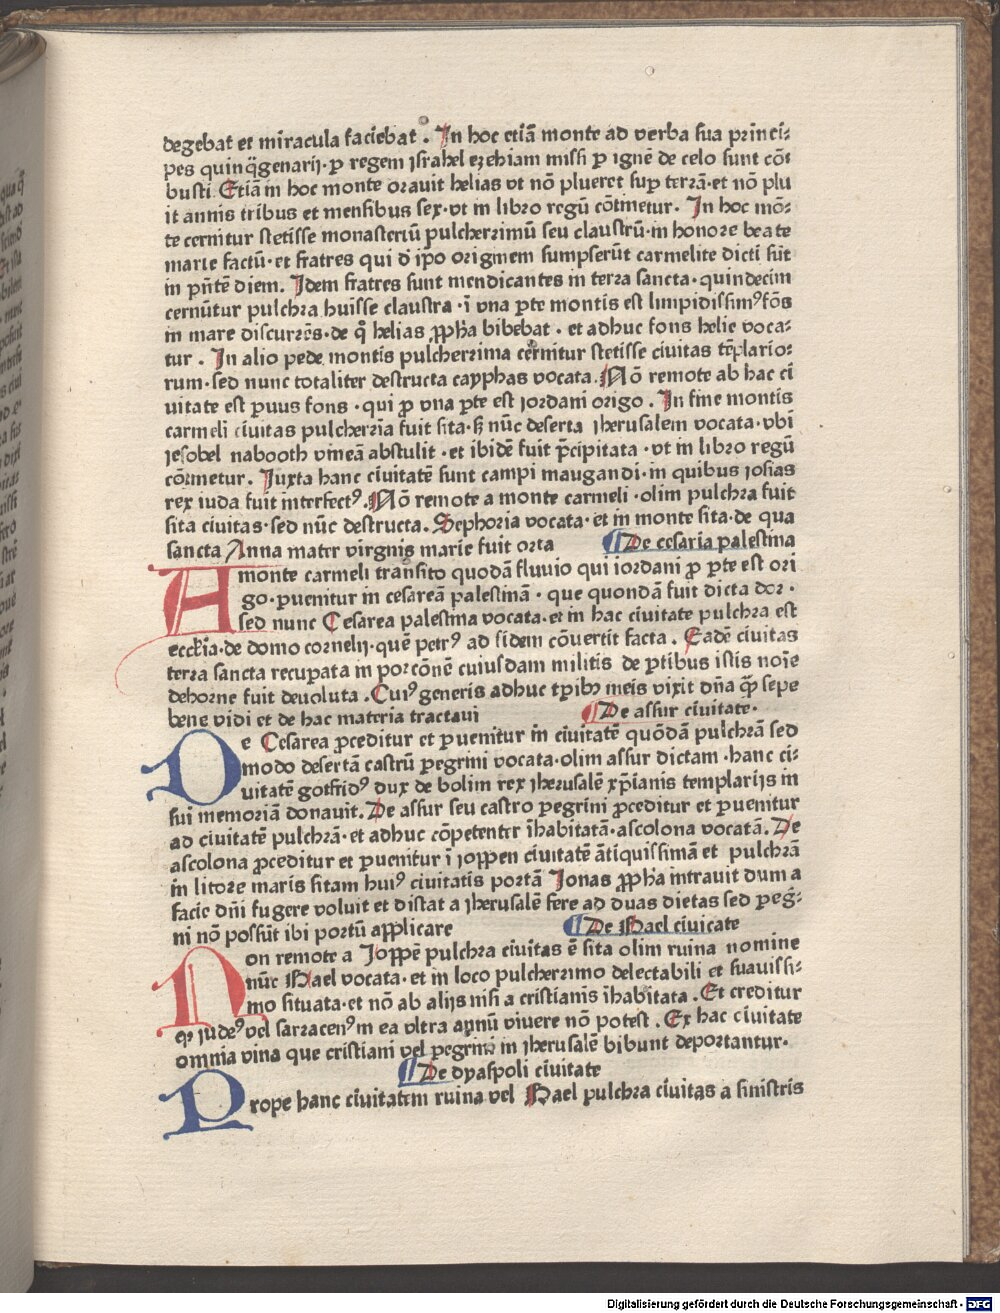 degebat et miracula faciebat . In hoc etiã monte ad verba sua princi:
pes quinq̃genarij · ꝑ regem israhel ezehiam missi ꝑ ignẽ de celo sunt cõ:
busti Etiã in hoc monte orauit helias vt nõ plueret suꝑ terrã · et nõ plu
it annis tribus et mensibus sex · vt in libro regũ cõtinetur . In hoc mõ:
te cernitur stetisse monasteriũ pulcherrimũ seu claustrũ · in honore beate
marie factũ · et fratres qui d̄ ip̄o originem sumpserũt carmelite dicti sũt
in pn̄tẽ diem . Idem fratres sunt mendicantes in terra sancta · quindecim
cernũtur pulchra huisse claustra · ĩ vna ꝑte montis est limpidissimꝰ fõs
in mare discurrẽs · de q̃ helias ꝓpħa bibebat · et adhuc fons helie voca:
tur . In alio pede montis pulcherrima cernitur stetisse ciuitas tẽplario:
rum · sed nunc totaliter destructa cayphas vocata . Nõ remote ab hac ci
uitate est ꝑuus fons · qui ꝓ vna ꝑte est iordani origo . In fine montis
carmeli ciuitas pulcherr̄ia fuit sita · sꝫ nũc deserta iherusalem vocata · vbi
iesobel nabooth vineã abstulit · et ibidẽ fuit p̄cipitata · vt in libro regũ
cõtinetur . Iuxta hanc ciuitatẽ sunt campi maugandi · in quibus iosias
rex iuda fuit interfectꝰ . Nõ remote a monte carmeli · olim pulchra fuit
sita ciuitas · sed nũc destructa . Sephoria vocata · et in monte sita · de qua
sancta Anna mater virginis marie fuit orta ¶ De cesaria palestina
A monte carmeli transito quodã fluuio qui iordani ꝓ ꝑte est ori
go · ꝑuenitur in cesareã palestinã · que quondã fuit dicta dor ·
sed nunc Cesarea palestina vocata · et in hac ciuitate pulchra est
eccl̄ia · de domo cornelij · quẽ petrꝰ ad fidem cõuertit facta . Eadẽ ciuitas
terra sancta recupata in porcõnẽ cuiusdam militis de ꝑtibus istis noĩe
dehorne fuit deuoluta . Cuiꝰ generis adhuc tꝑibꝫ meis vixit dñã q̃ sepe
bene vidi et de hac materia tractaui ¶ De assur ciuitate ·
De Cesarea ꝓceditur et ꝑuenitur in ciuitatẽ quõdã pulchrã sed
modo desertã castrũ ꝑegrini vocata · olim assur dictam · hanc ci:
uitatẽ gotfridꝰ dux de bolim rex iherusalẽ xp̄ianis templarijs in
sui memoriã donauit . De assur seu castro ꝑegrini ꝓceditur et ꝑuenitur
ad ciuitatẽ pulchrã · et adhuc cõpetenter ĩhabitatã · ascolona vocatã . De
ascolona ꝓceditur et ꝑuenitur ĩ ioppen ciuitatẽ ãtiquissimã et pulchrã
in litore maris sitam huiꝰ ciuitatis portã Ionas ꝓpħa intrauit dum a
facie dñi fugere voluit et distat a iherusalẽ fere ad duas dietas sed ꝑeg̃:
ni nõ possũt ibi portũ applicare ¶ De Hael ciuicate
Non remote a Ioppẽ pulchra ciuitas ẽ sita olim ruina nomine
nũc Hael vocata · et in loco pulcherrimo delectabili et suauissi:
mo situata · et nõ ab alijs nisi a cristianis ĩhabitata . Et creditur
qꝫ iudeꝰ vel sarracenꝰ in ea vltra annũ viuere nõ potest . Ex hac ciuitate
omnia vina que cristiani vel ꝑegrini in iherusalẽ bibunt deportantur ·
¶ De dyaspoli ciuitate
Prope hanc ciuitatem ruina vel Hael pulchra ciuitas a sinistris
Digitalisierung gefördert durch die Deutsche Forschungsgemeinschaft - DFG